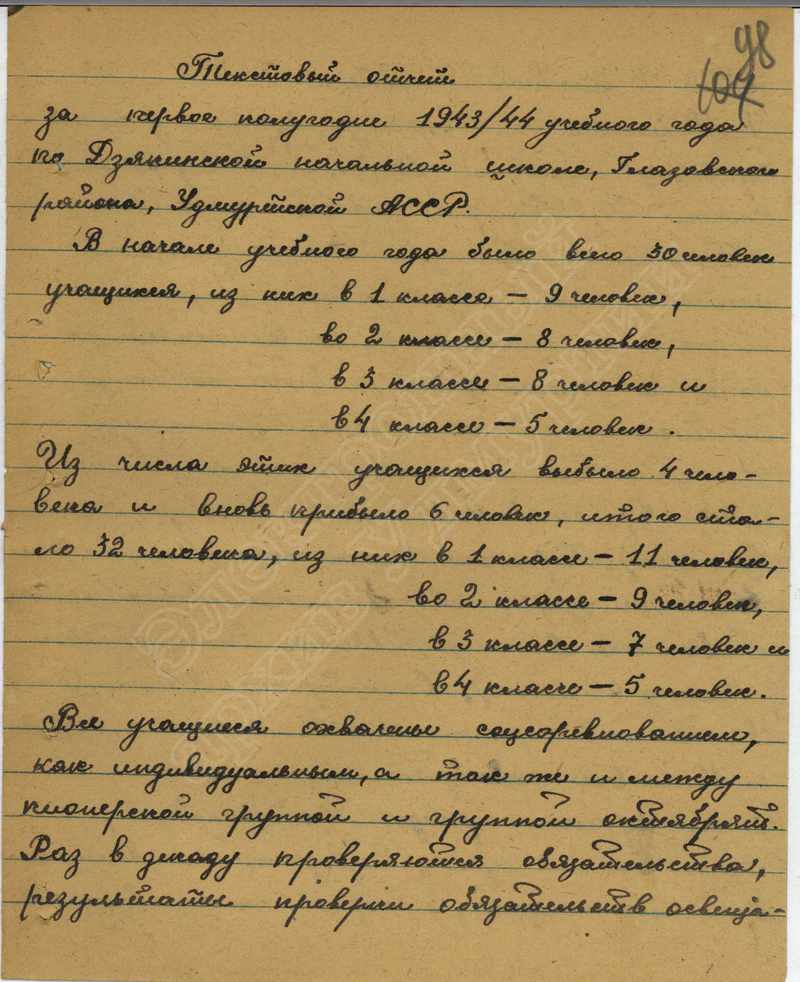 98
109
Текстовый отчет
за первое полугодие 1943/44 учебного года
по Дзякинской начальной школе, Глазовского
района, Удмуртской АССР.
В начале учебного года было всего 30 человек
учащихся, из них в 1 классе – 9 человек,
во 2 классе – 8 человек,
в 3 классе – 8 человек и
в 4 классе – 5 человек.
Из числа этих учащихся выбыло 4 чело-
века и вновь прибыло 6 человек, итого ста-
ло 32 человека, из них в 1 классе – 11 человек,
во 2 классе – 9 человек,
в 3 классе – 7 человек и
в 4 классе – 5 человек.
Все учащиеся охвачены соцсоревнованием,
как индивидуальным, а так же и между
пионерской группой и группой октябрят.
Раз в декаду проверяются обязательства,
результаты проверки обязательств освеща-